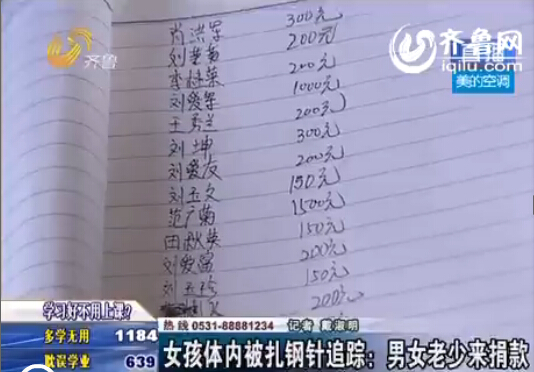 齐鲁
齐鲁网
iqilu.com
美的空调
肖洪军 300元
刘楚菊 200元
李好荣 200元
刘爱军 1000元
王秀兰 200元
刘坤 300元
刘爱友 200元
刘玉文 150元
范广菊 1500元
田秋英 150元
刘爱富 200元
150元
200元
学习好不用上课?
多学无用 1184
耽误学业 639
热线 0531-88881234 记者 戴淑明
女孩体内被扎钢针追踪:男女老少来捐款